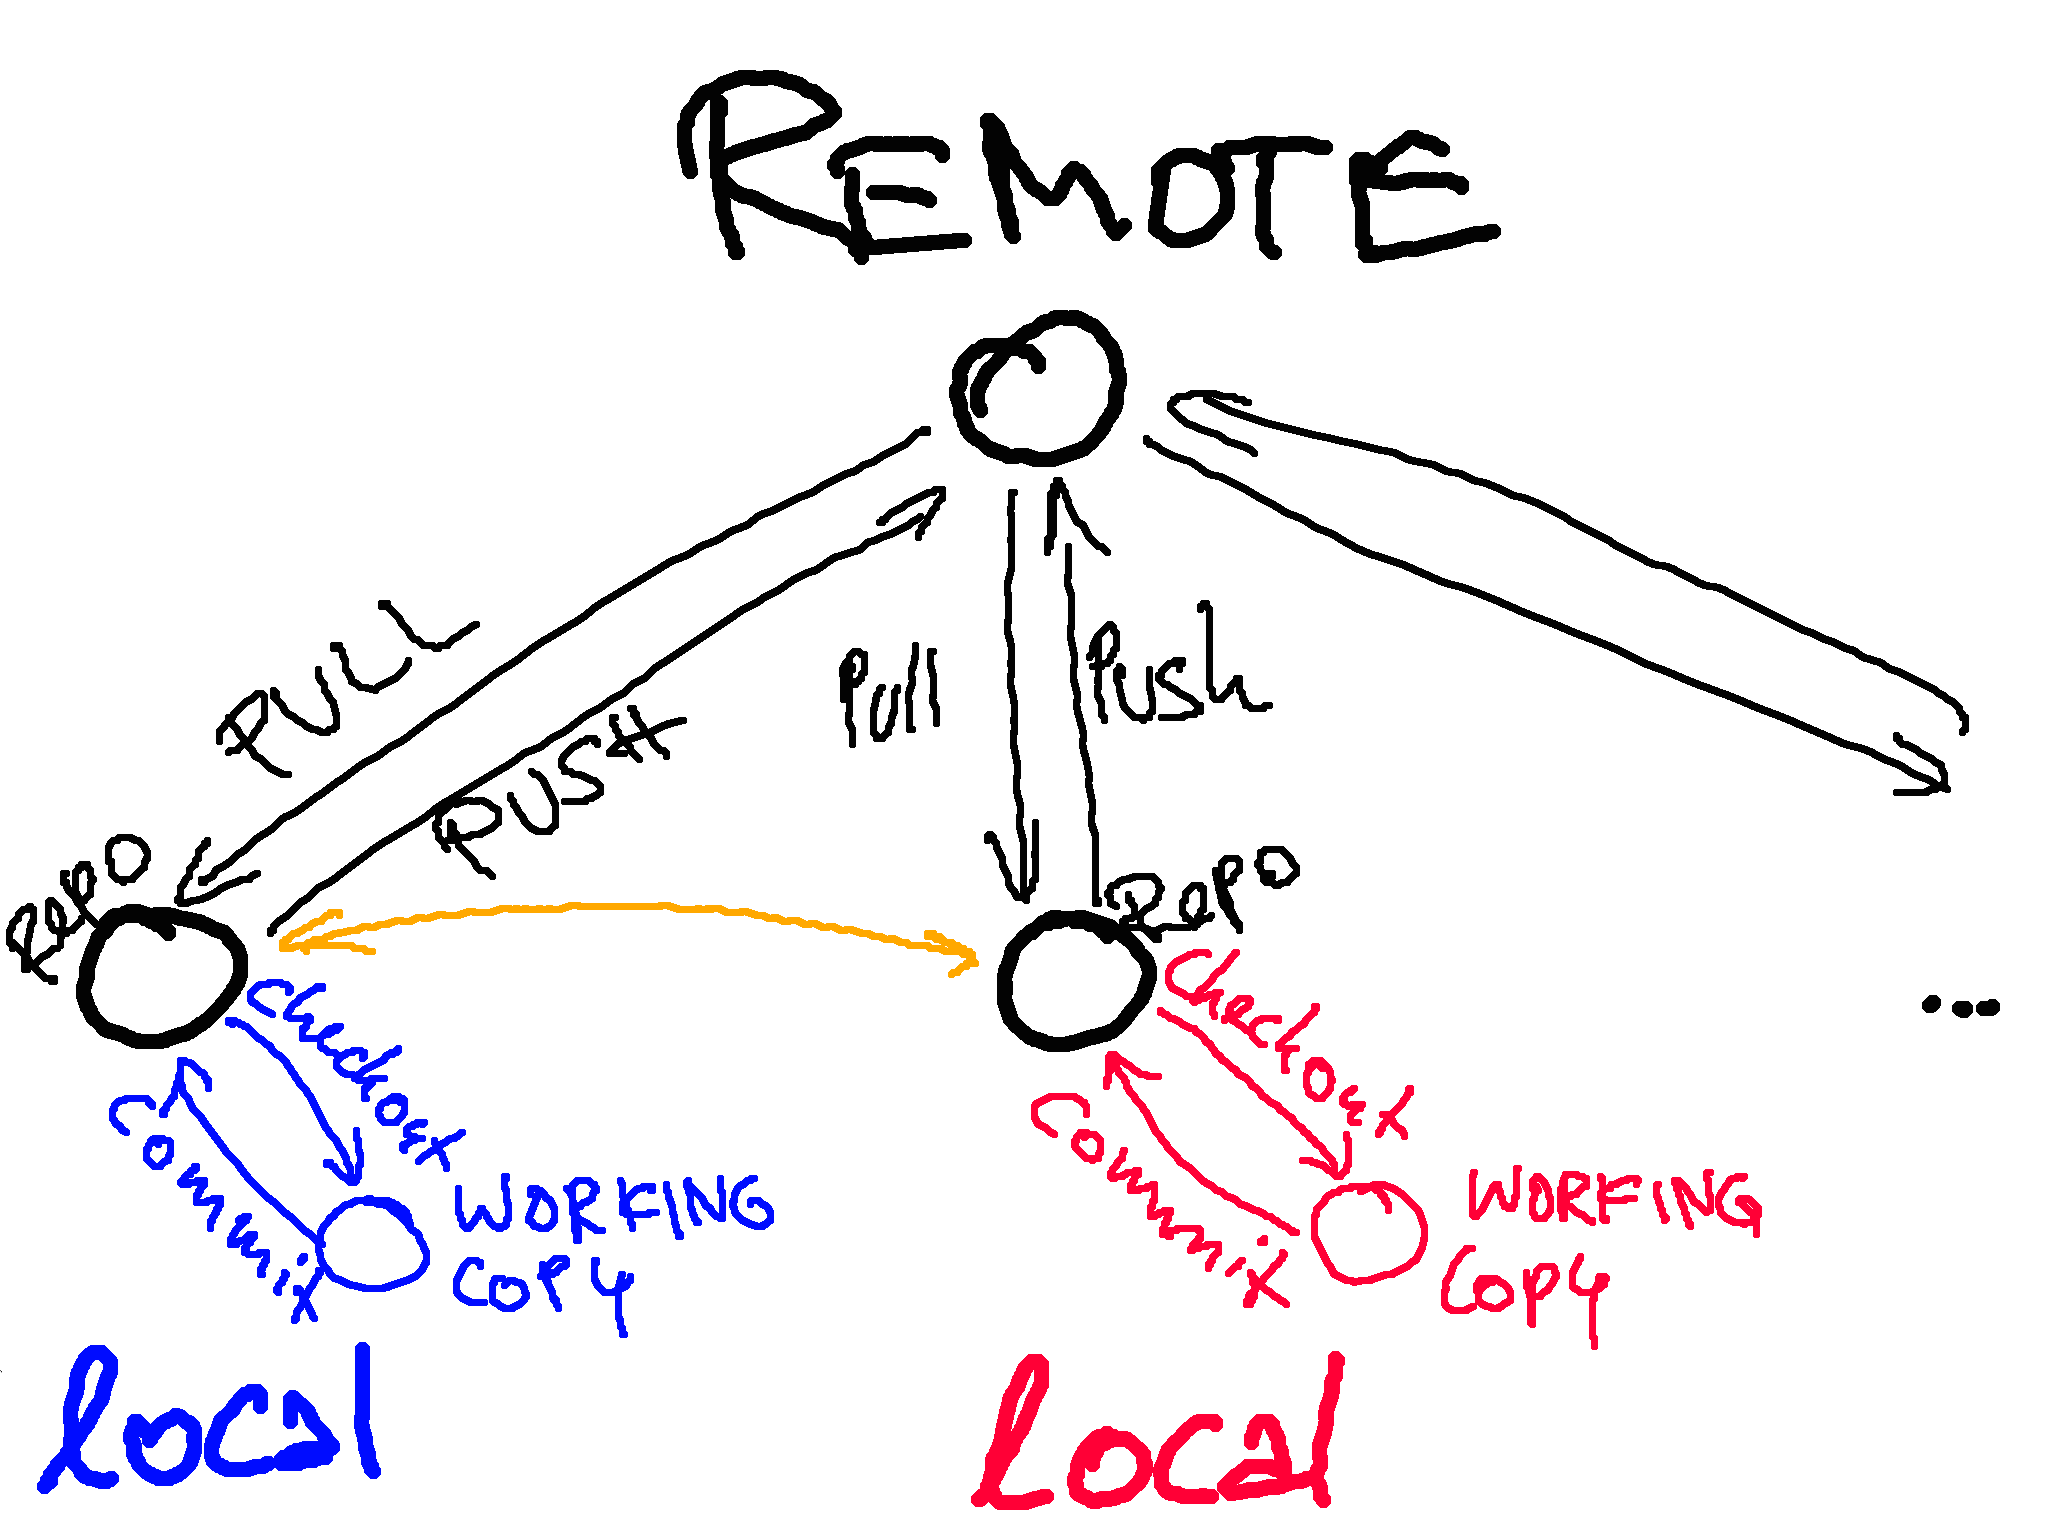 REMOTE
PULL
PUSH
Pull
Push
Repo
Repo
Checkout
Commit
WORKING
COPY
Checkout
Commit
WORKING
COPY
...
local
local